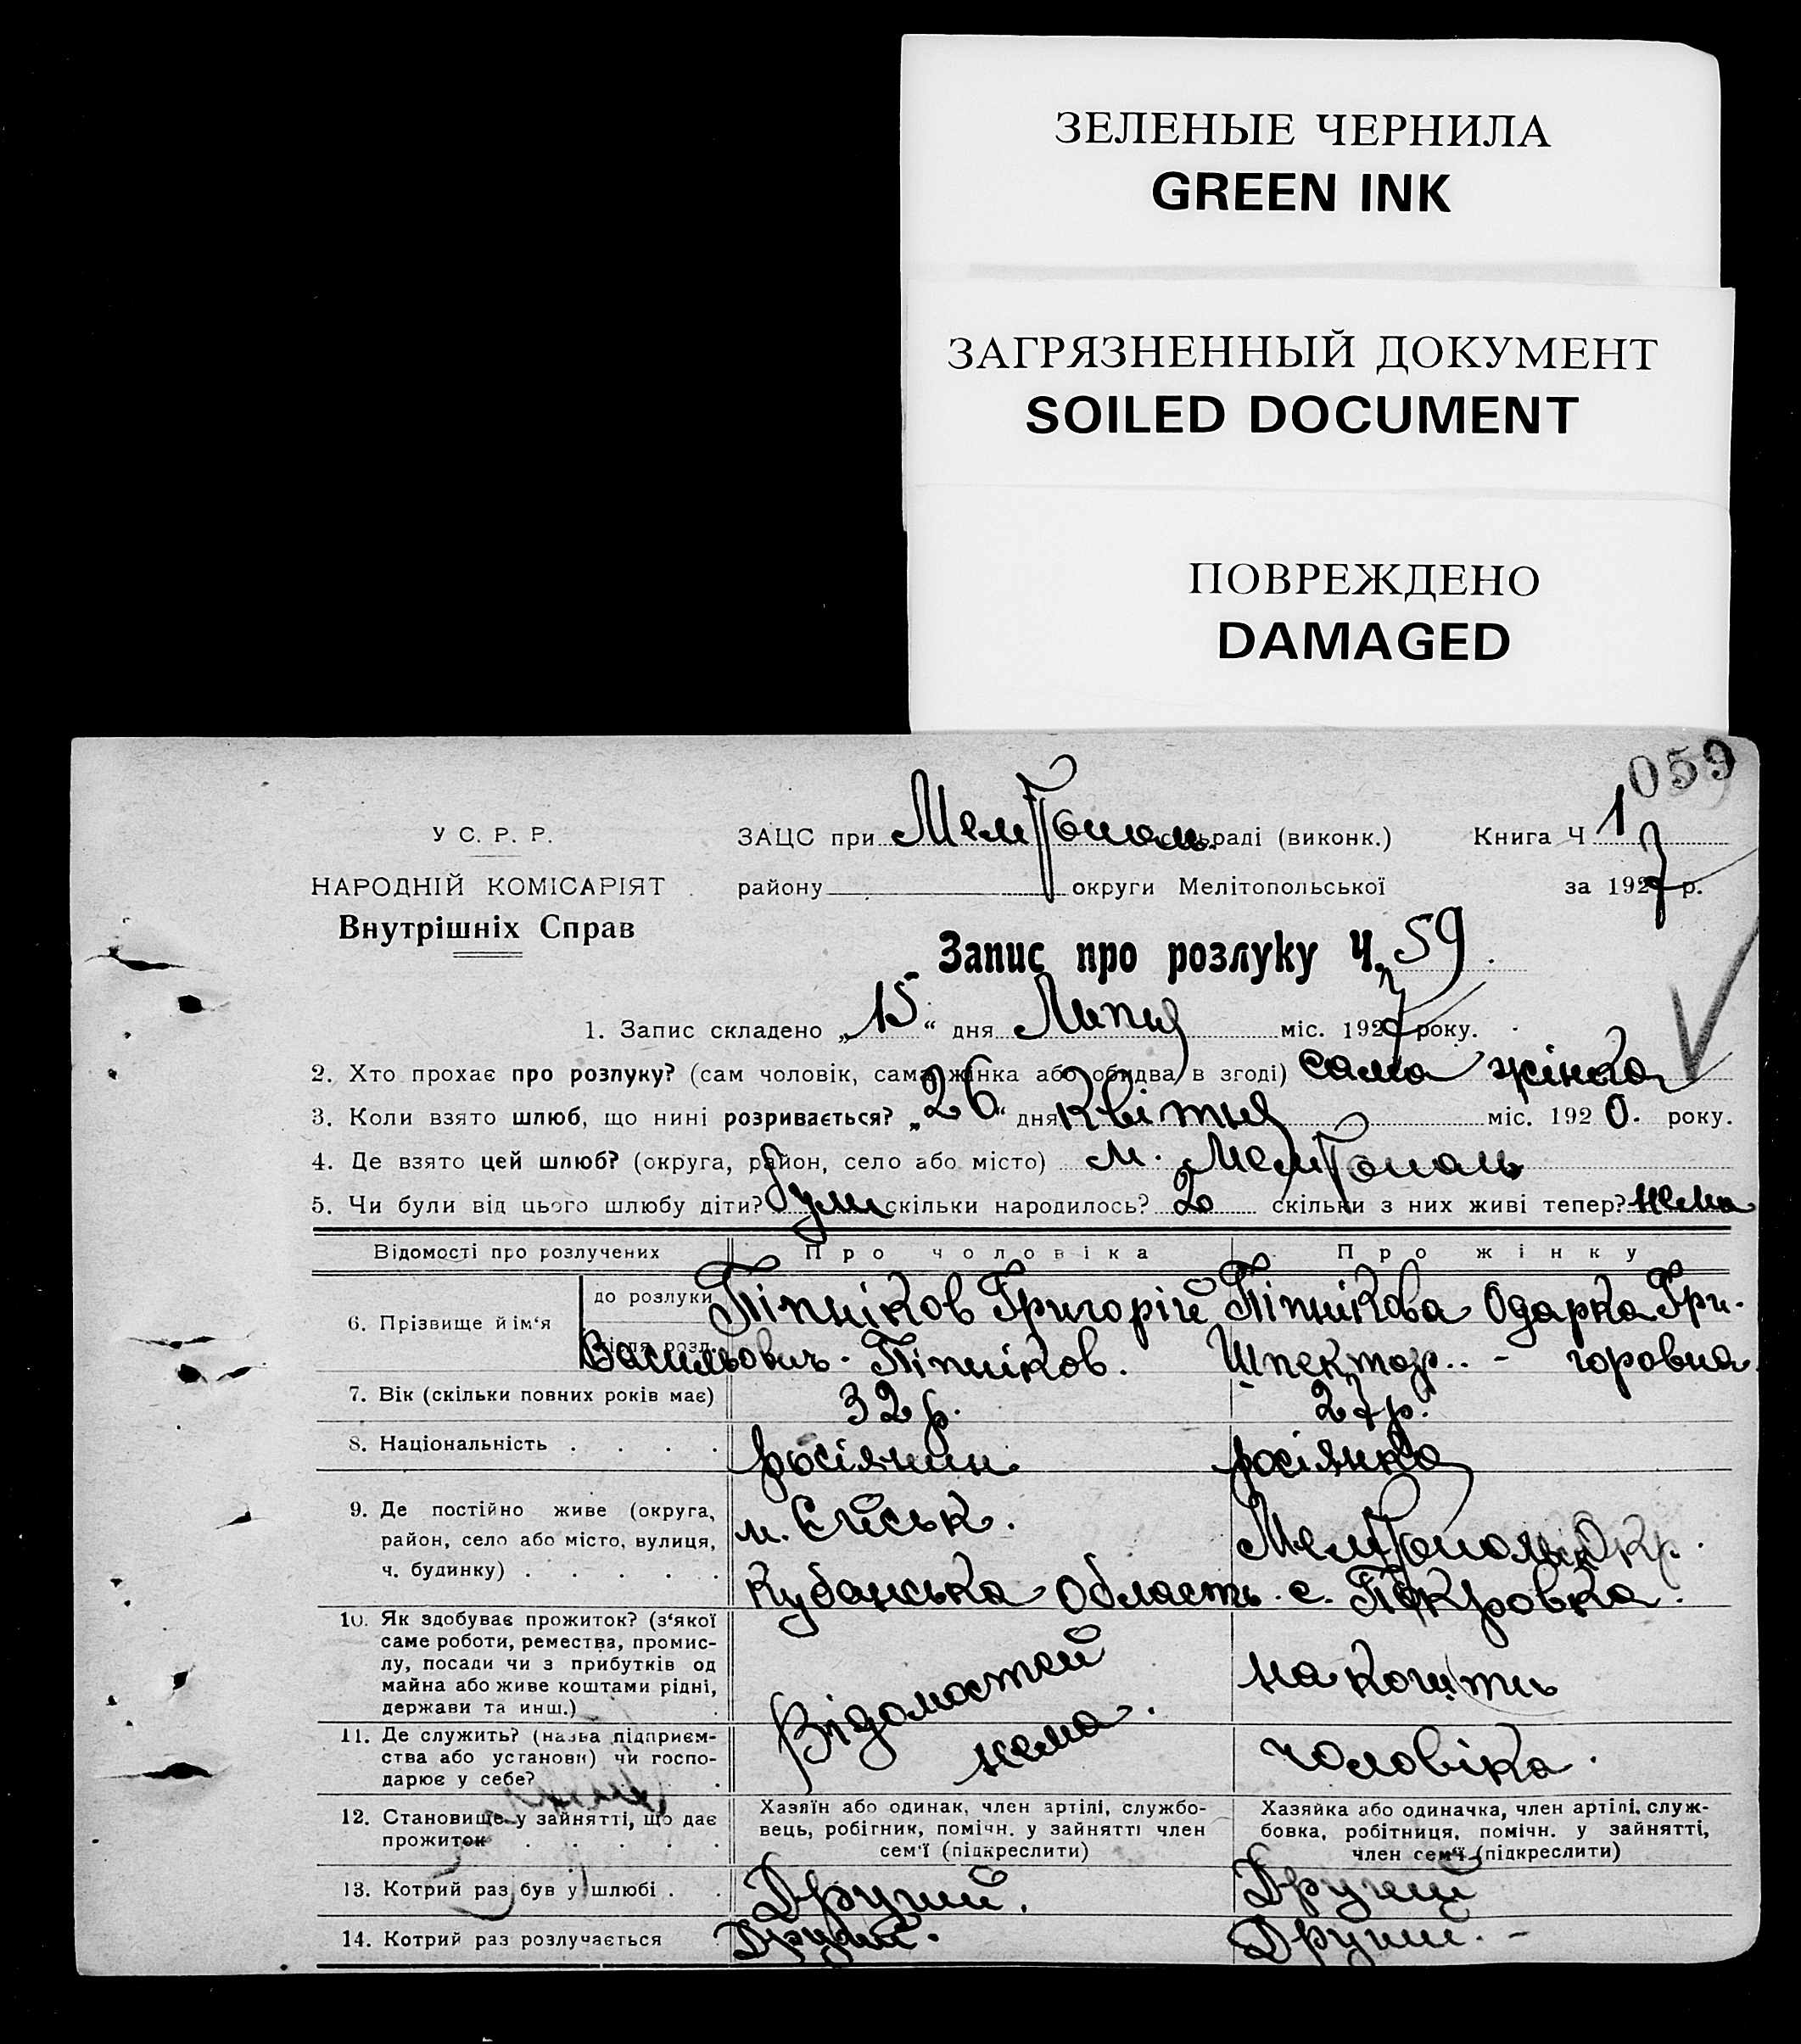 ЗЕЛЕНЫЕ ЧЕРНИЛА
GREEN INK
ЗАГРЯЗНЕННЫЙ ДОКУМЕНТ
SOILED DOCUMENT
ПОВРЕЖДЕНО
DAMAGED
059
У С. Р. Р. ЗАЦС при Мелітополь сільраді (виконк.) Книга Ч 1
НАРОДНІЙ КОМІСАРІЯТ району округи Мелітопольської за 1927 р.
Внутрішніх Справ
Запис про розлуку Ч. 59.
1. Запис складено „15“ дня Липня міс. 1927 року.
2. Хто прохає про розлуку? (сам чоловік, сама жінка або обидва в згоді) сама жінка
3. Коли взято шлюб, що нині розривається? „26“ дня Квітня міс. 1920. року.
4. Де взято цей шлюб? (округа, район, село або місто) м. Мелітополь
5. Чи були від цього шлюбу діти? були скільки народилось? 2 скільки з них живі тепер? нема
Відомості про розлучених Про чоловіка Про жінку
6. Прізвище й ім‘я до розлуки Пітніков Григорій Пітнікова Одарка Гри-
після розл. Васильович. Пітніков. Шпектор.. - горовна.
7. Вік (скільки повних років має) 32 р. 27 р.
8. Національність . . . . росіянин росіянка
9. Де постійно живе (округа, район, село або місто, вулиця, ч. будинку) . . . . .
м. Єйськ. Мелітопольськ Окр.
Кубанська область. с. Покровка.
10. Як здобуває прожиток? (з‘якої саме роботи, ремества, промислу, посади чи з прибутків од майна або живе коштами рідні, держави та инш.) .
Відомостей нема. на кошти
11. Де служить? (назва підприємства або установи) чи господарює у себе? .
чоловіка.
12. Становище у зайнятті, що дає прожиток . . . . .
Хазяїн або одинак, член артілі, службовець, робітник, помічн. у зайнятті член сем‘ї (підкреслити)
Хазяйка або одиначка, член артілі, службовка, робітниця, помічн. у зайнятті, член сем‘ї (підкреслити)
13. Котрий раз був у шлюбі . . Другий. Другий
14. Котрий раз розлучається Другий. Другий. -